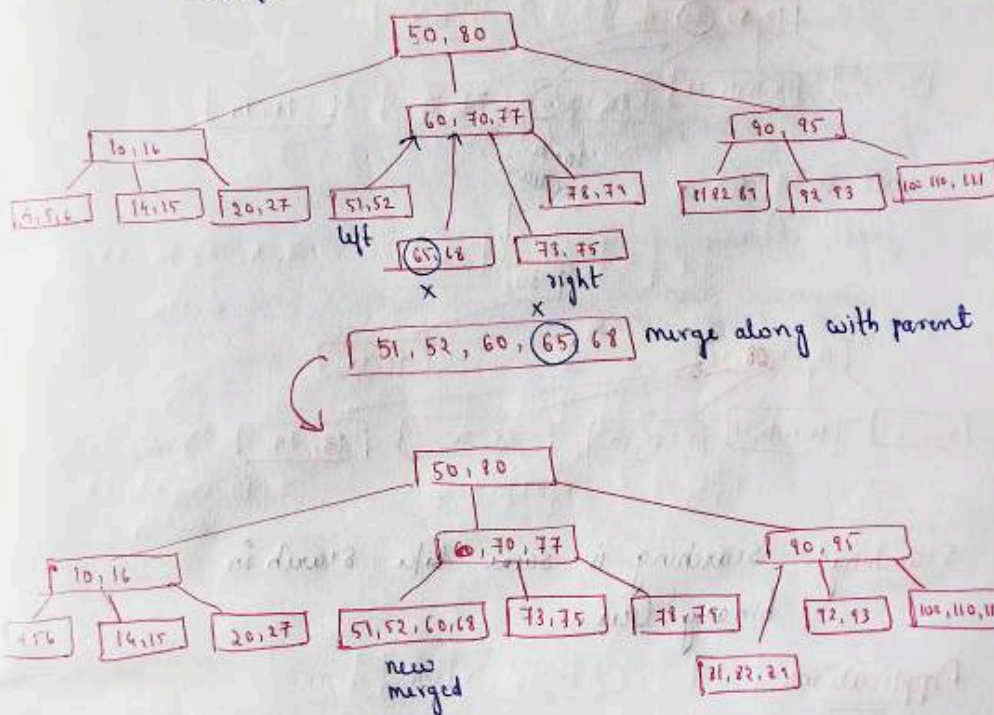 50, 80
10, 16
60, 70, 77
90, 95
4, 5, 6
14, 15
20, 27
51, 52
78, 79
81 82 89
92, 93
100 110, 111
left
65, 68
73, 75
x
right
x
51, 52, 60, 65 68
merge along with parent
50, 80
10, 16
70, 77
90, 95
4 5 6
14, 15
20, 27
51, 52, 60, 68
73, 75
78, 79
92, 93
100, 110, 11
new
merged
81, 82, 89